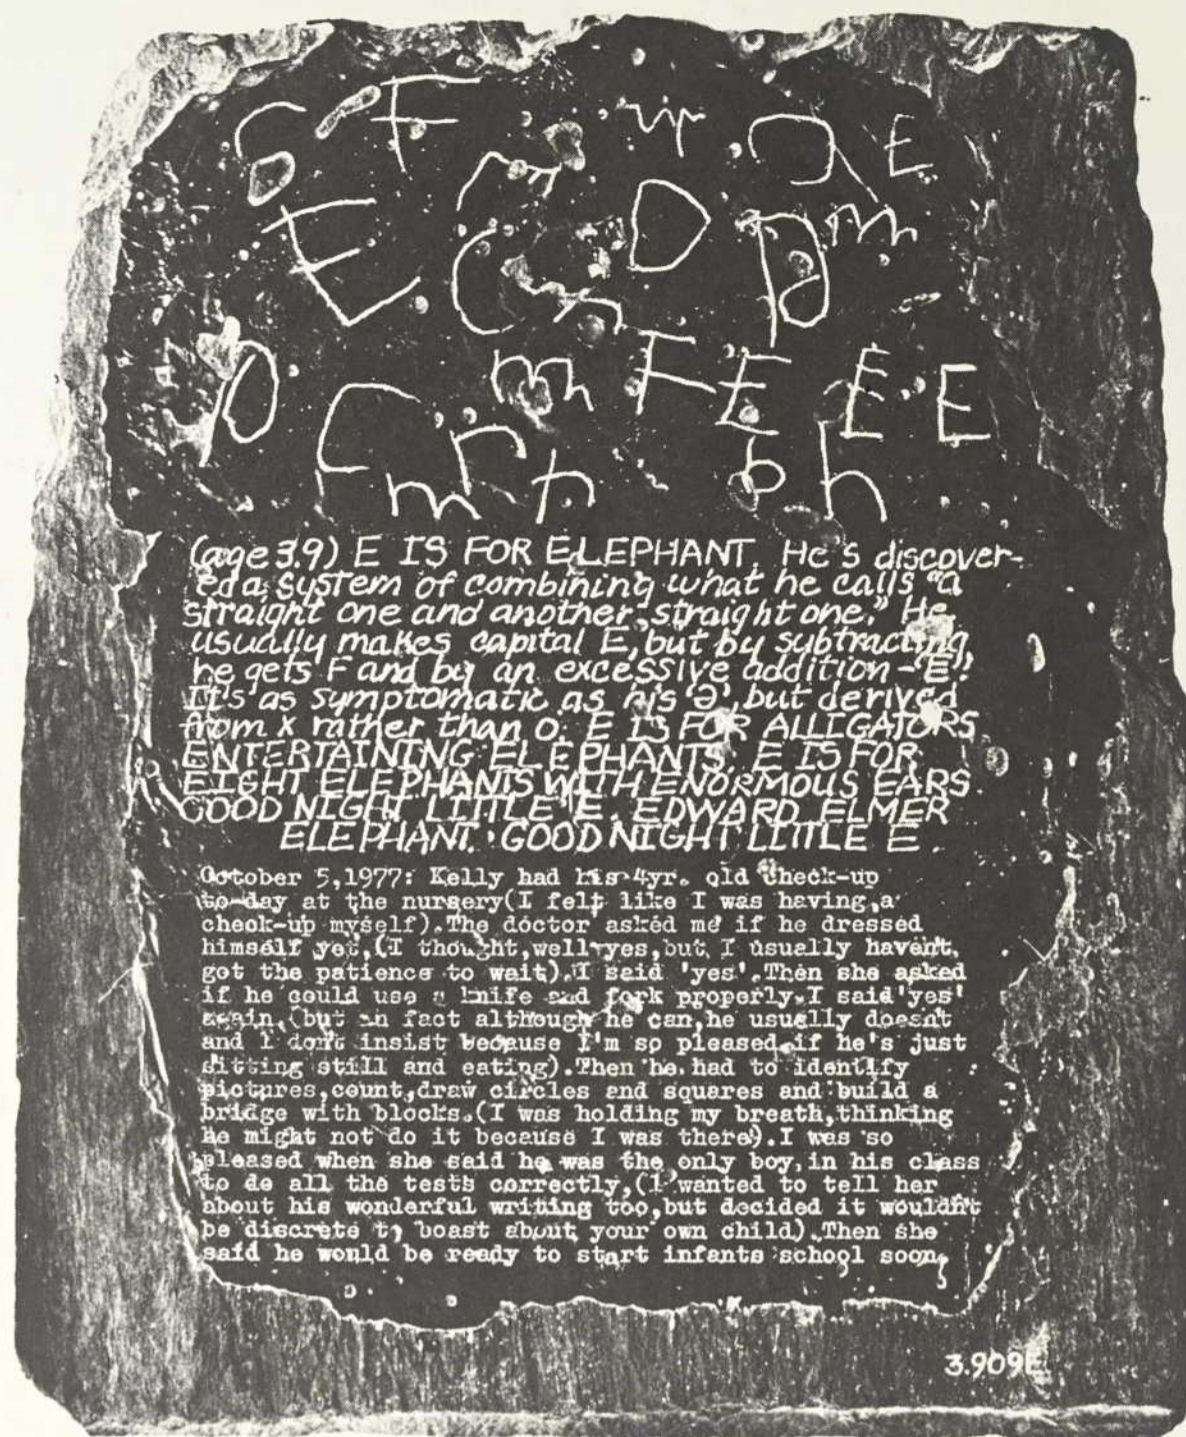 S F m n E
E C m D p m
p C m F E E E
r m r h b h
(age 3.9) E IS FOR ELEPHANT. He's discover-
ed a system of combining what he calls "a
straight one and another straight one." He
usually makes capital E, but by subtracting,
he gets F and by an excessive addition - 'E'.
It's as symptomatic as his 'ə', but derived
from x rather than o. E IS FOR ALLIGATORS
ENTERTAINING ELEPHANTS. E IS FOR
EIGHT ELEPHANTS WITH ENORMOUS EARS.
GOOD NIGHT LITTLE E. EDWARD ELMER
ELEPHANT. GOOD NIGHT LITTLE E.
October 5,1977: Kelly had his 4yr. old check-up
to-day at the nursery(I felt like I was having a
check-up myself).The doctor asked me if he dressed
himself yet,(I thought,well yes,but I usually havent
got the patience to wait).I said 'yes'.Then she asked
if he could use a knife and fork properly.I said'yes'
again,(but in fact although he can,he usually doesnt
and I dont insist because I'm so pleased if he's just
sitting still and eating).Then he had to identify
pictures,count,draw circles and squares and build a
bridge with blocks.(I was holding my breath,thinking
he might not do it because I was there).I was so
pleased when she said he was the only boy in his class
to do all the tests correctly,(I wanted to tell her
about his wonderful writing too,but decided it wouldn't
be discrete to boast about your own child).Then she
said he would be ready to start infants school soon,
3.909E